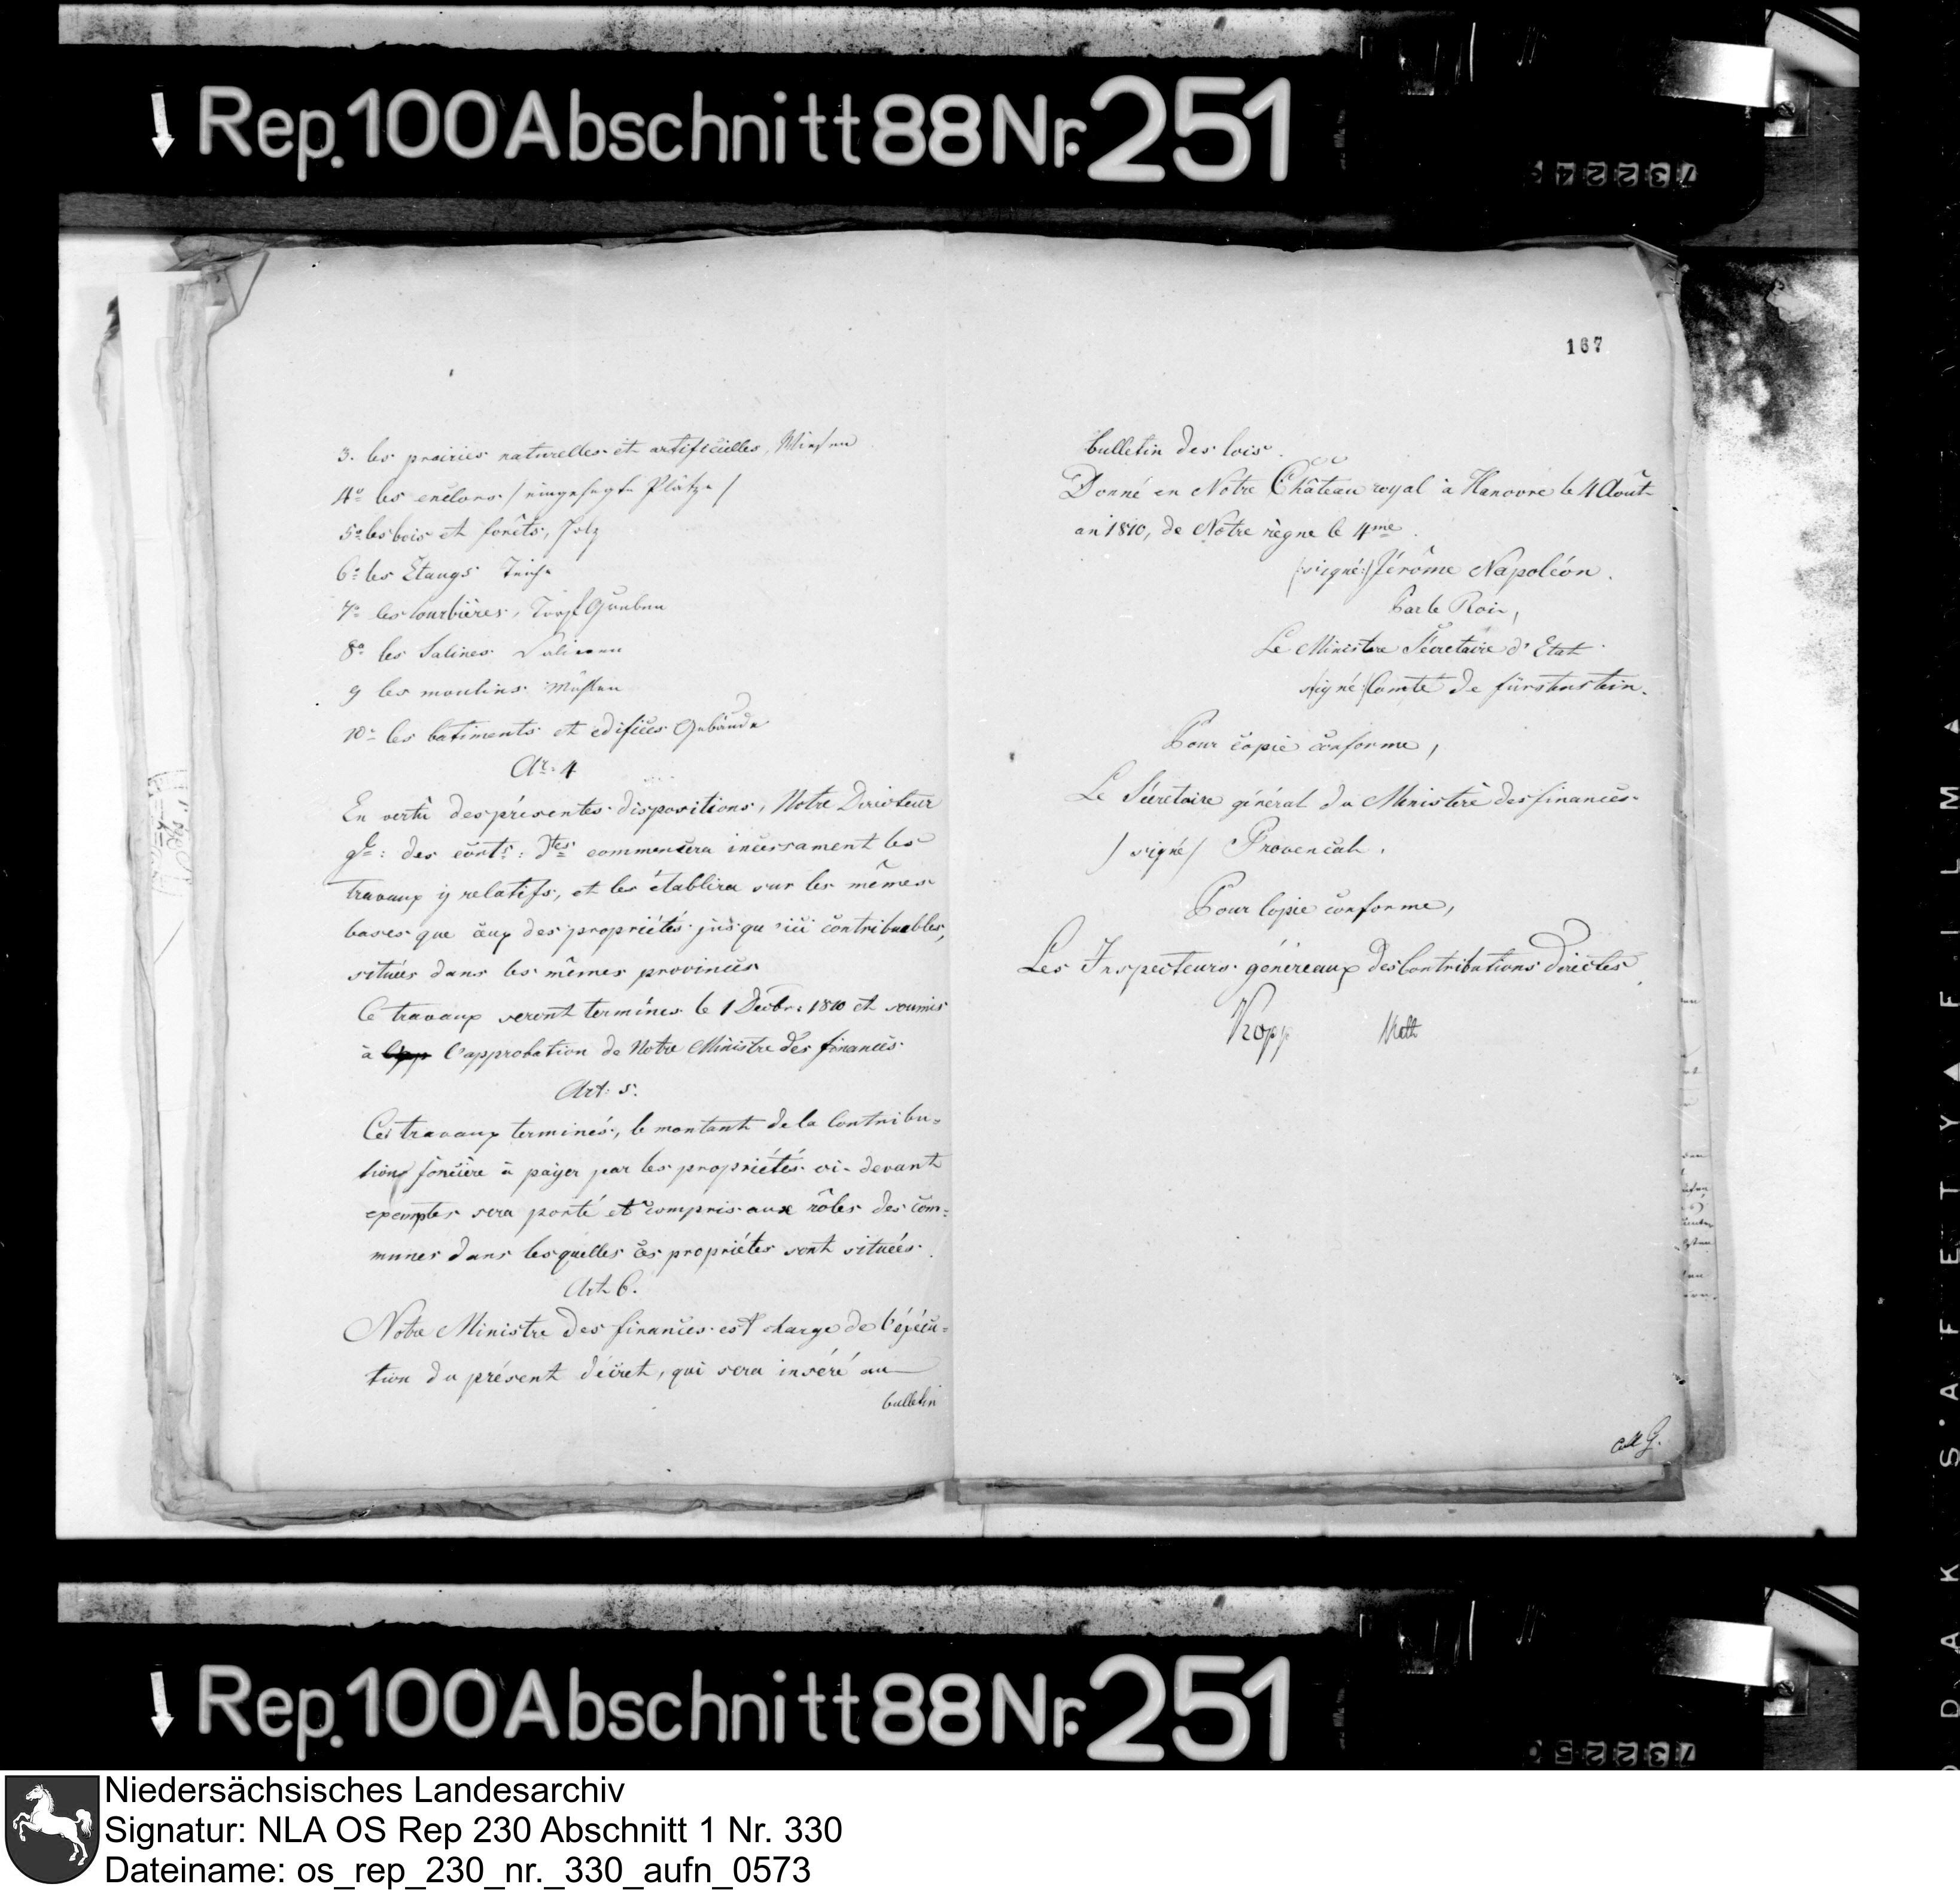 Rep. 100 Abschnitt 88 Nr. 251
3. les prairies naturelles et artificielles, Wiesen
4o les enclons / eingehegte Plätze /
5o les bois et forêts, Holz
6o les Etangs Teiche
7o les tourbières, Torf Gruben
8o les Salines Salinen
9 les moulins Mühlen
10o les batiments et edifices Gebäude
Ar. 4
En vertu des présentes dispositions, Notre Directeur
gl: des conts: dtes commencera incessament les
travaux y relatifs, et les établira sur les mêmes
bases que aux des propriétés jusqu'ici contribuables,
situées dans les mêmes provinces
Ce travaux seront terminés le 1 Decbr: 1810 et soumis
à l'approbation de Notre Ministre des finances
Art: 5.
Ces travaux terminés, le montant de la Contribu=
tion foncière à payer par les propriétés ci-devant
exemptes sera porté et compris aux rôles des com=
munes dans lesquelles ces propriétes sont situées.
Art 6.
Notre Ministre des finances est charge de l'éxécu=
tion du présent décret, qui sera inséré au
bulletin
167
bulletin des lois.
Donné en Notre Château royal à Hanovre le 4 Août
an 1810, de Notre règne le 4me.
(signé:) Jérôme Napoléon.
Par le Roi,
Le Ministre Sécretaire d'Etat
signé Comte de fürstenstein.
Pour copie conforme,
Le Sécretaire général du Ministère des finances
/ signé / Provencal.
Pour Copie conforme,
Les Inspecteurs généreaux des Contributions directes,
Kopp
coll G.
Rep. 100 Abschnitt 88 Nr. 251
Niedersächsisches Landesarchiv
Signatur: NLA OS Rep 230 Abschnitt 1 Nr. 330
Dateiname: os_rep_230_nr._330_aufn_0573